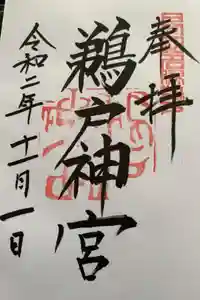 奉拝
鵜戸神宮
令和二年十一月一日